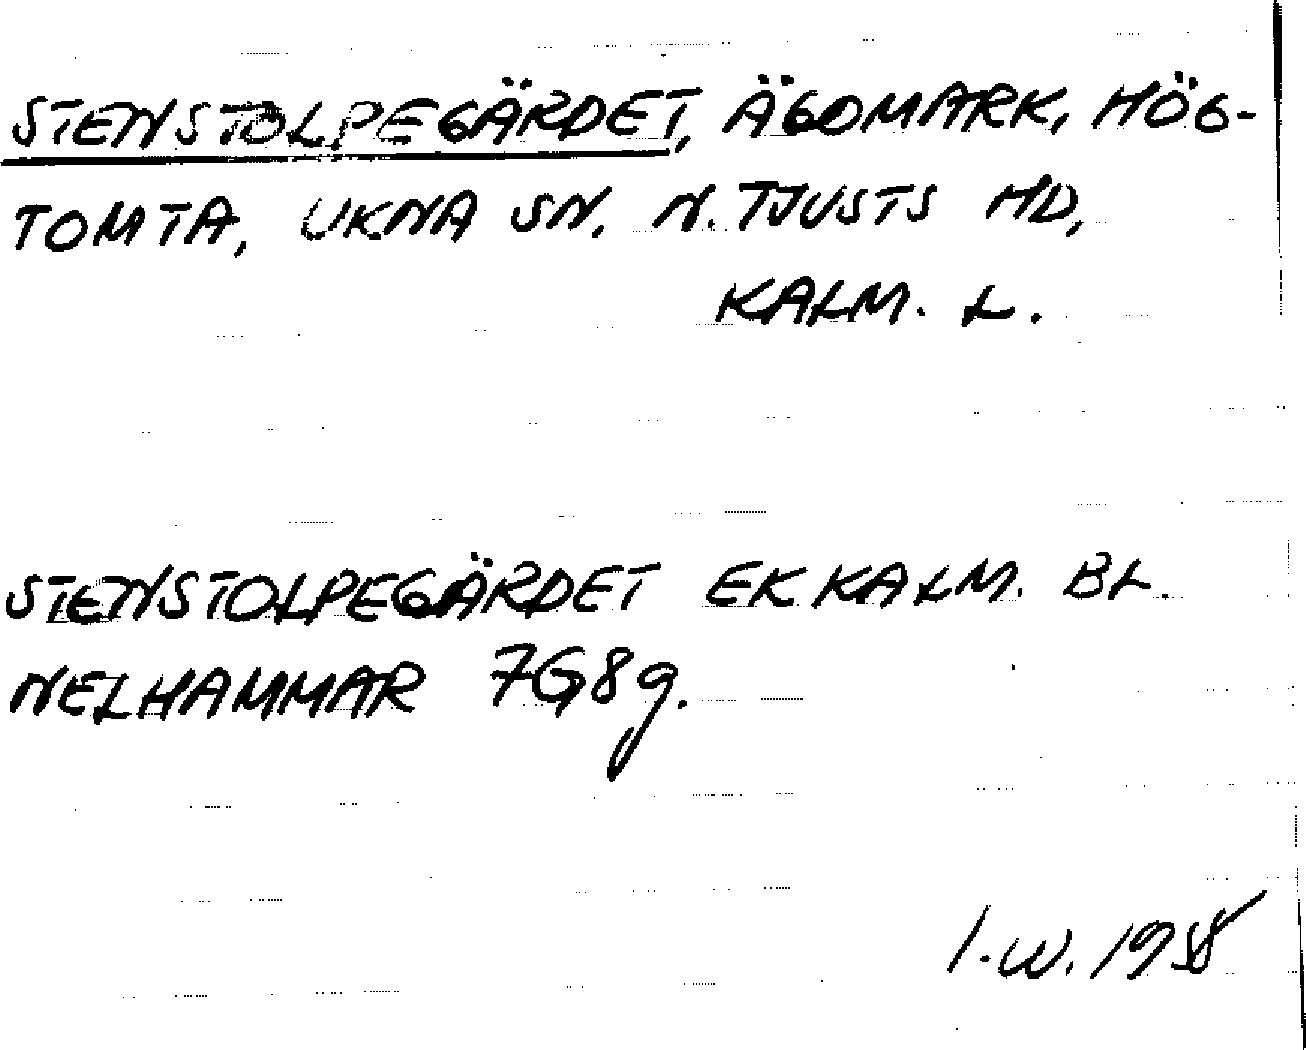 STENSTOLPEGÄRDET, ÄGOMARK, HÖG-
TOMTA, UKNA SN. N. TJUSTS HD,
KALM. L.
STENSTOLPEGÄRDET EK KALM. BL.
NELHAMMAR 7G8g.
I.W. 1958